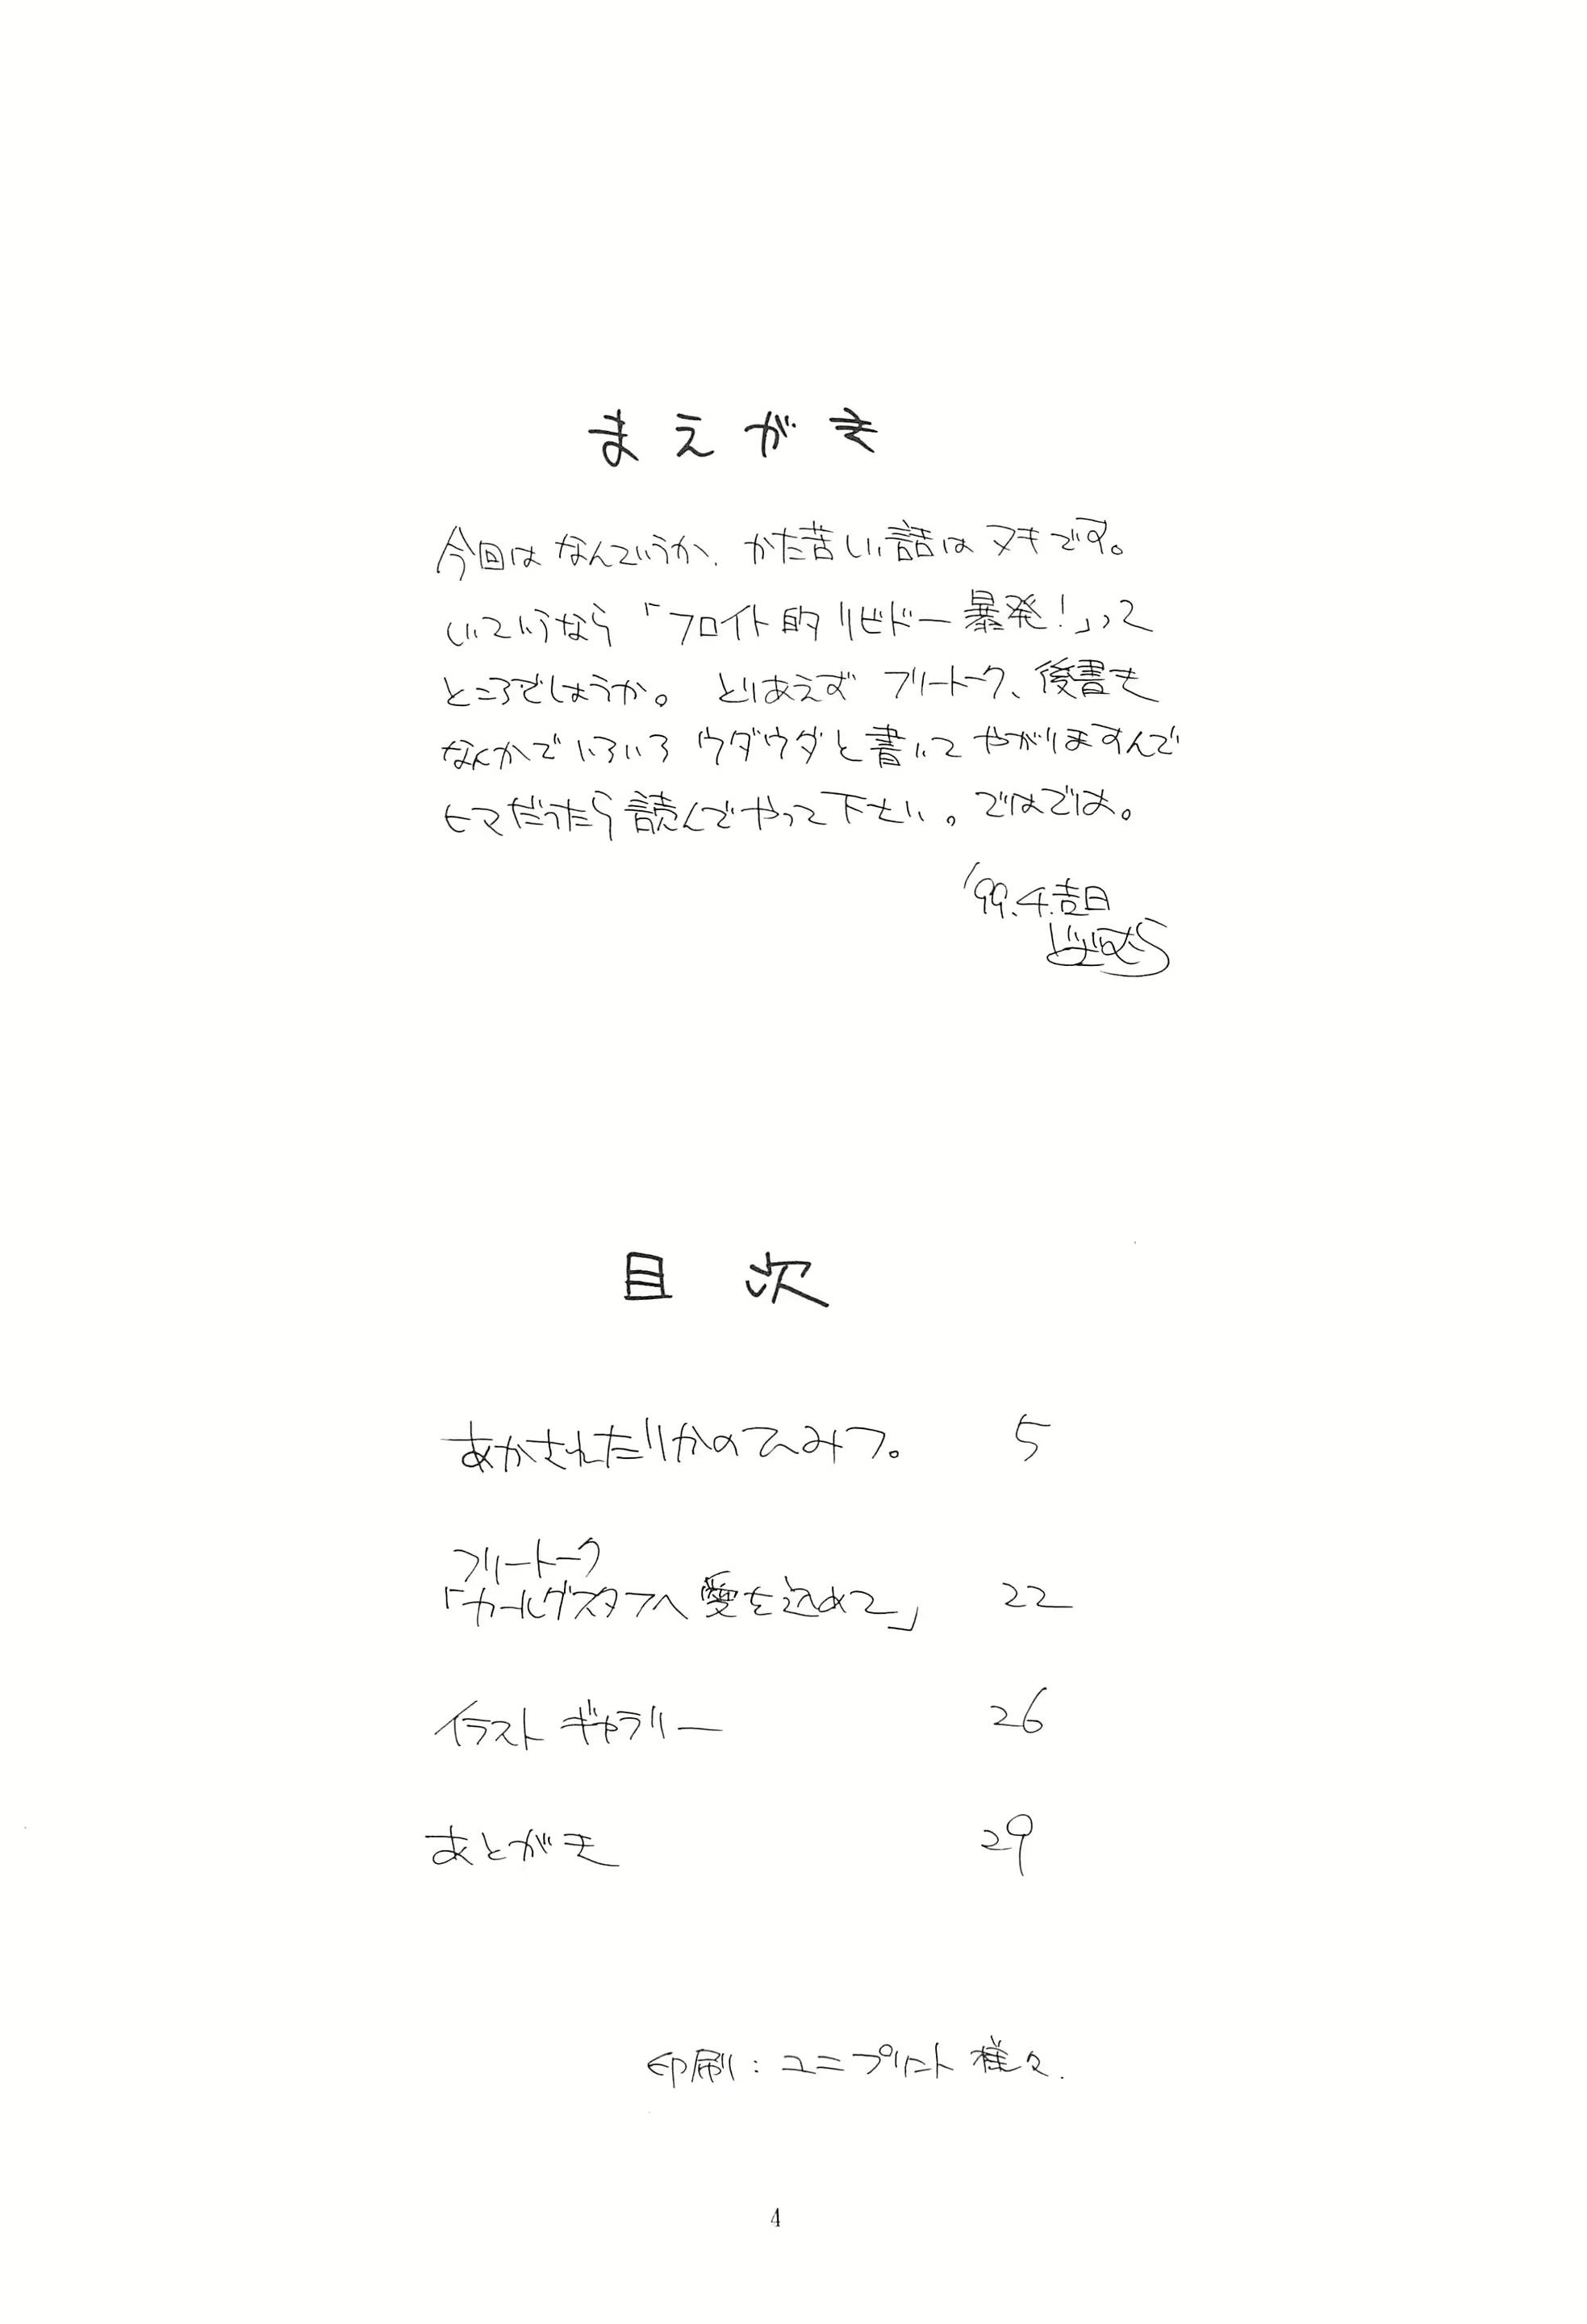 まえがき
今回はなんていうか、かた苦しい話はヌキです。
いていうなら「フロイト的リビドー暴発!」って
ところでしょうか。とりあえずフリートーク、後書き
なんかでいろいろウダウダと書いてやがりますんで
ヒマだったら読んでやって下さい。ではでは。
'99.4.吉日
目次
あかされたりかのひみつ。 5
フリートーク
「カールグスタフへ愛を込めて」 22
イラストギャラリー 26
あとがき 29
印刷:ユニプリント様々.
4